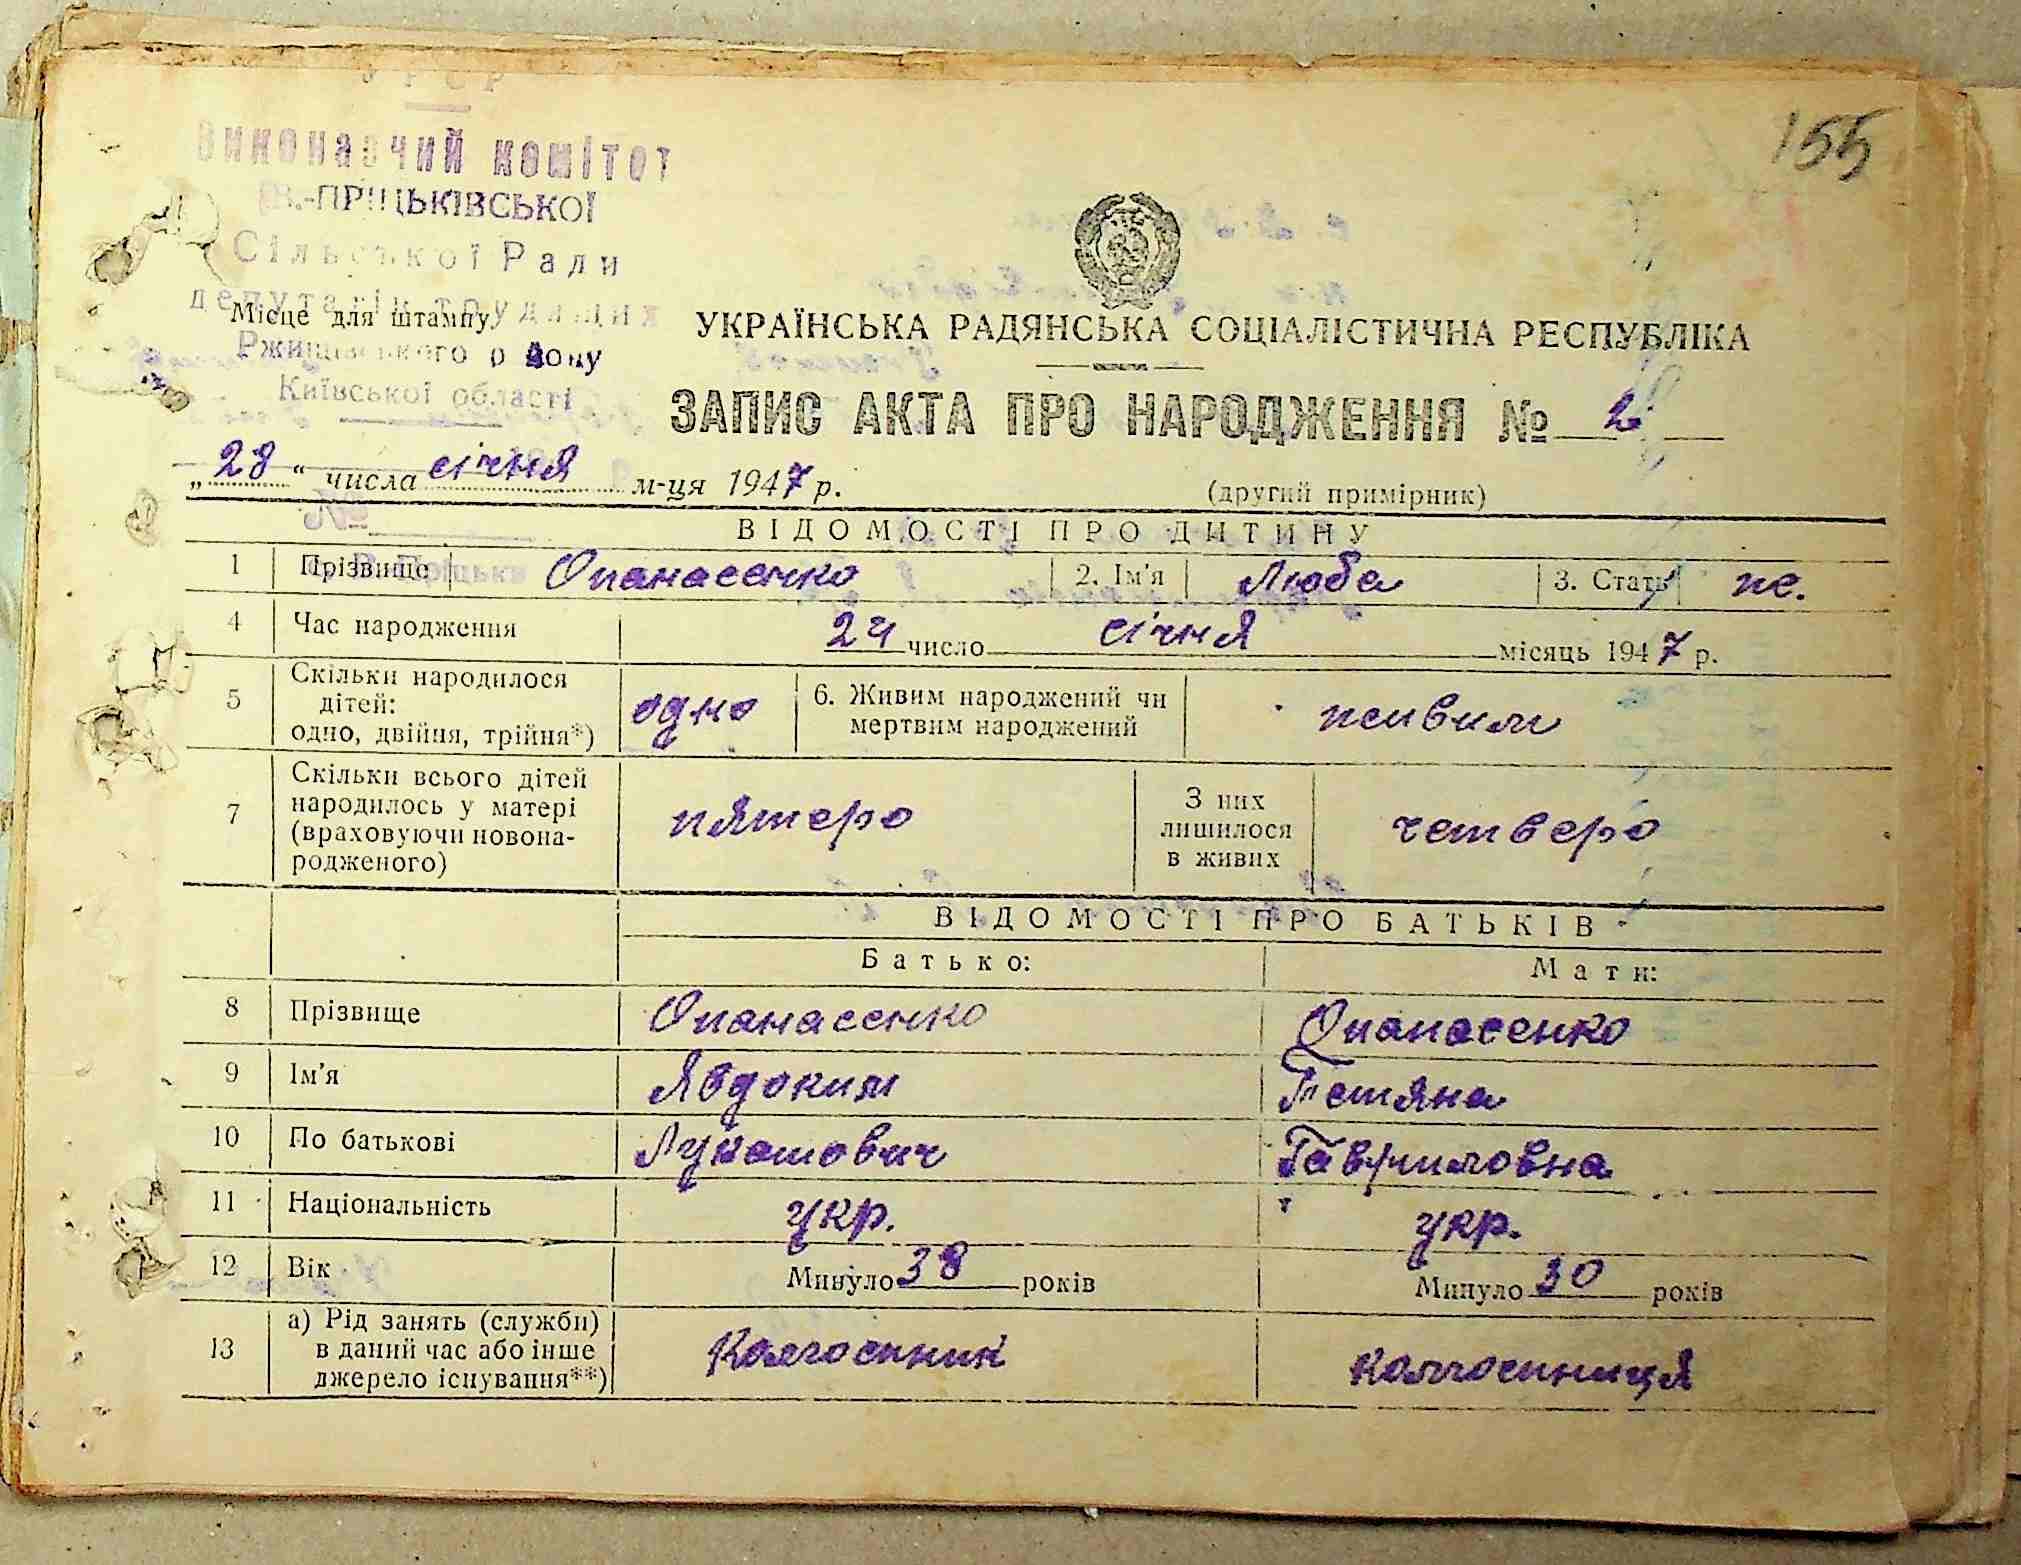 155
УРСР
Виконавчий комітет
В.-ПРІЦЬКІВСЬКОЇ
Сільської Ради
депутатів трудящих
Місце для штампу
Ржищівського району
Київської області
№
с. В-Пріцьки
УКРАЇНСЬКА РАДЯНСЬКА СОЦІАЛІСТИЧНА РЕСПУБЛІКА
ЗАПИС АКТА ПРО НАРОДЖЕННЯ № 2
„28“ числа січня м-ця 1947 р.
(другий примірник)
ВІДОМОСТІ ПРО ДИТИНУ
1 Прізвище Опанасенко 2. Ім'я Люба 3. Стать ж.
4 Час народження 24 число січня місяць 1947 р.
5 Скільки народилося дітей: одно, двійня, трійня*) одно 6. Живим народжений чи мертвим народжений живим
7 Скільки всього дітей народилось у матері (враховуючи новонародженого) пятеро З них лишилося в живих четверо
ВІДОМОСТІ ПРО БАТЬКІВ
Батько: Мати:
8 Прізвище Опанасенко Опанасенко
9 Ім'я Явдоким Тетяна
10 По батькові Лукашович Гавриловна
11 Національність укр. укр.
12 Вік Минуло 38 років Минуло 30 років
13 а) Рід занять (служби) в даний час або інше джерело існування**) Колгоспник колгоспниця